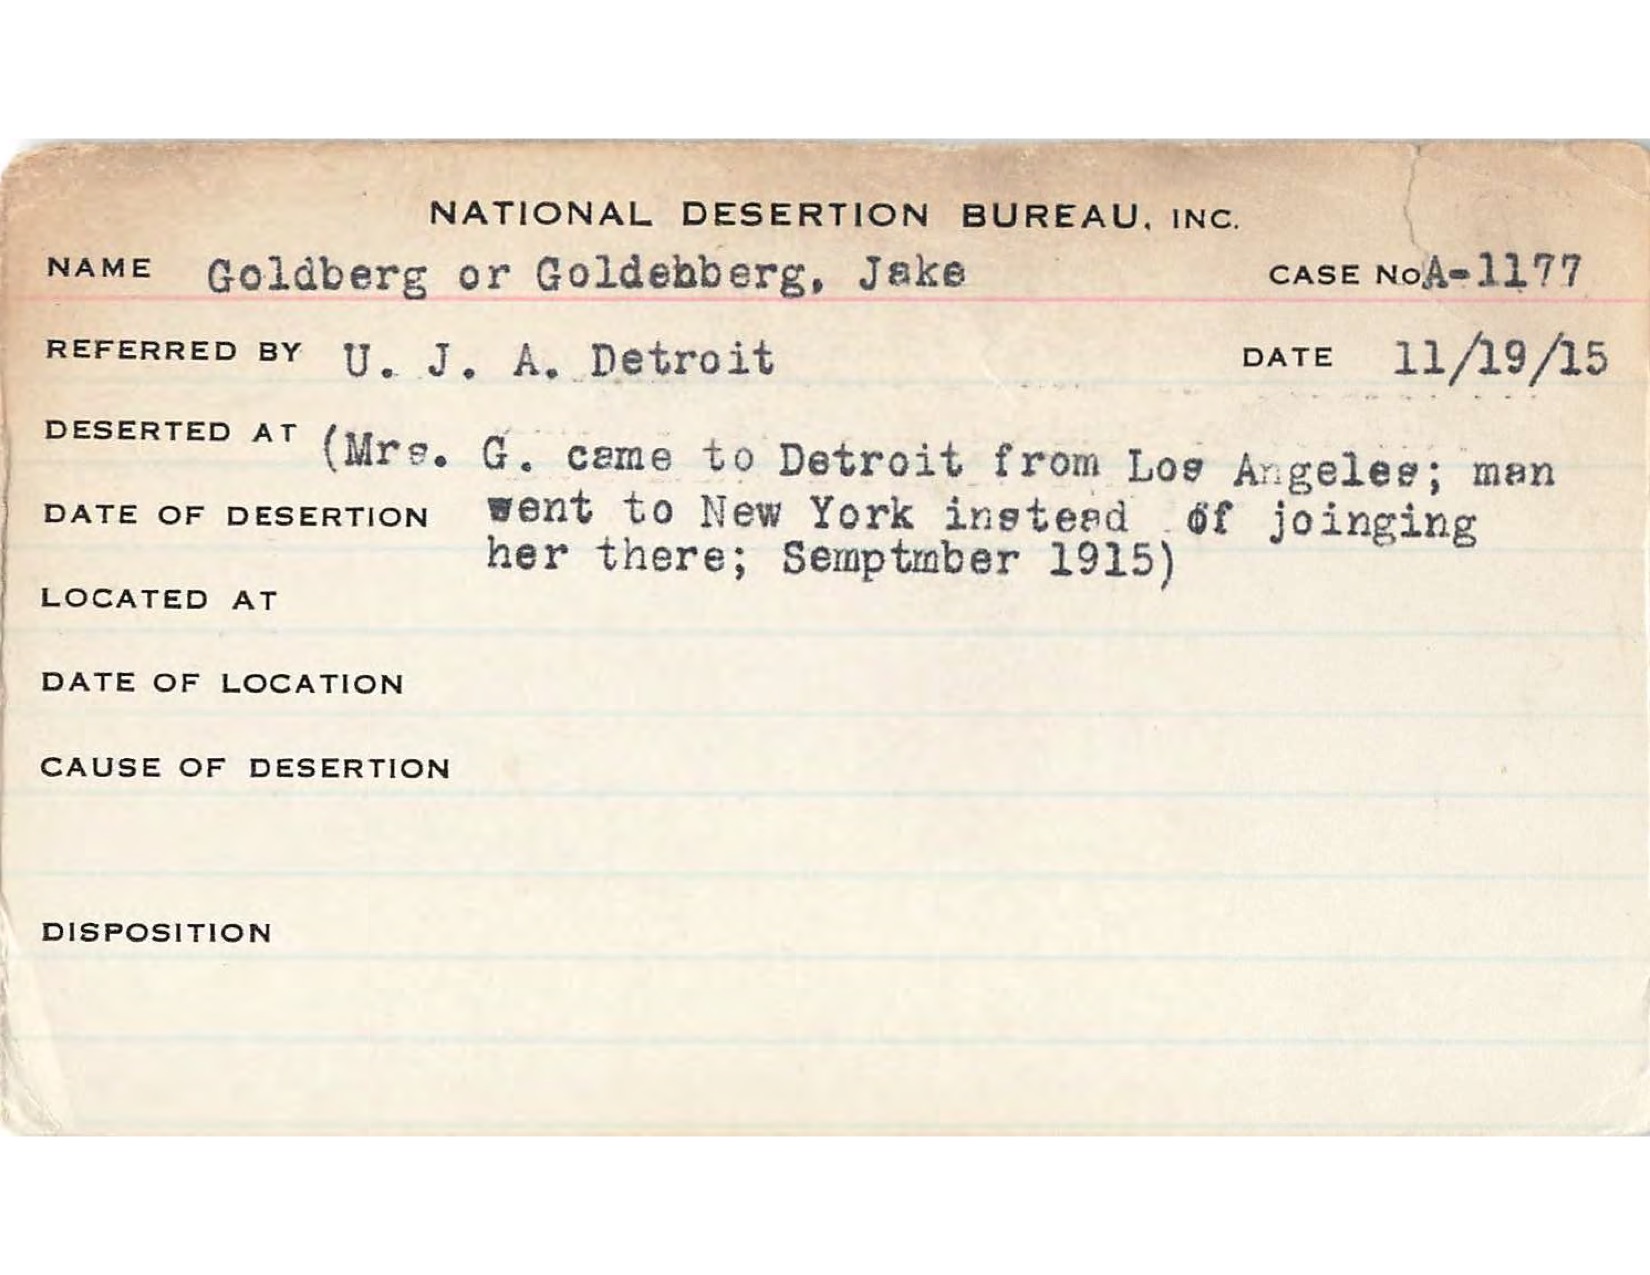 NATIONAL DESERTION BUREAU, INC.
NAME Goldberg or Goldenberg, Jake CASE NO A-1177
REFERRED BY U. J. A. Detroit DATE 11/19/15
DESERTED AT (Mrs. G. came to Detroit from Los Angeles; man
DATE OF DESERTION went to New York instead of joinging
her there; Semptmber 1915)
LOCATED AT
DATE OF LOCATION
CAUSE OF DESERTION
DISPOSITION